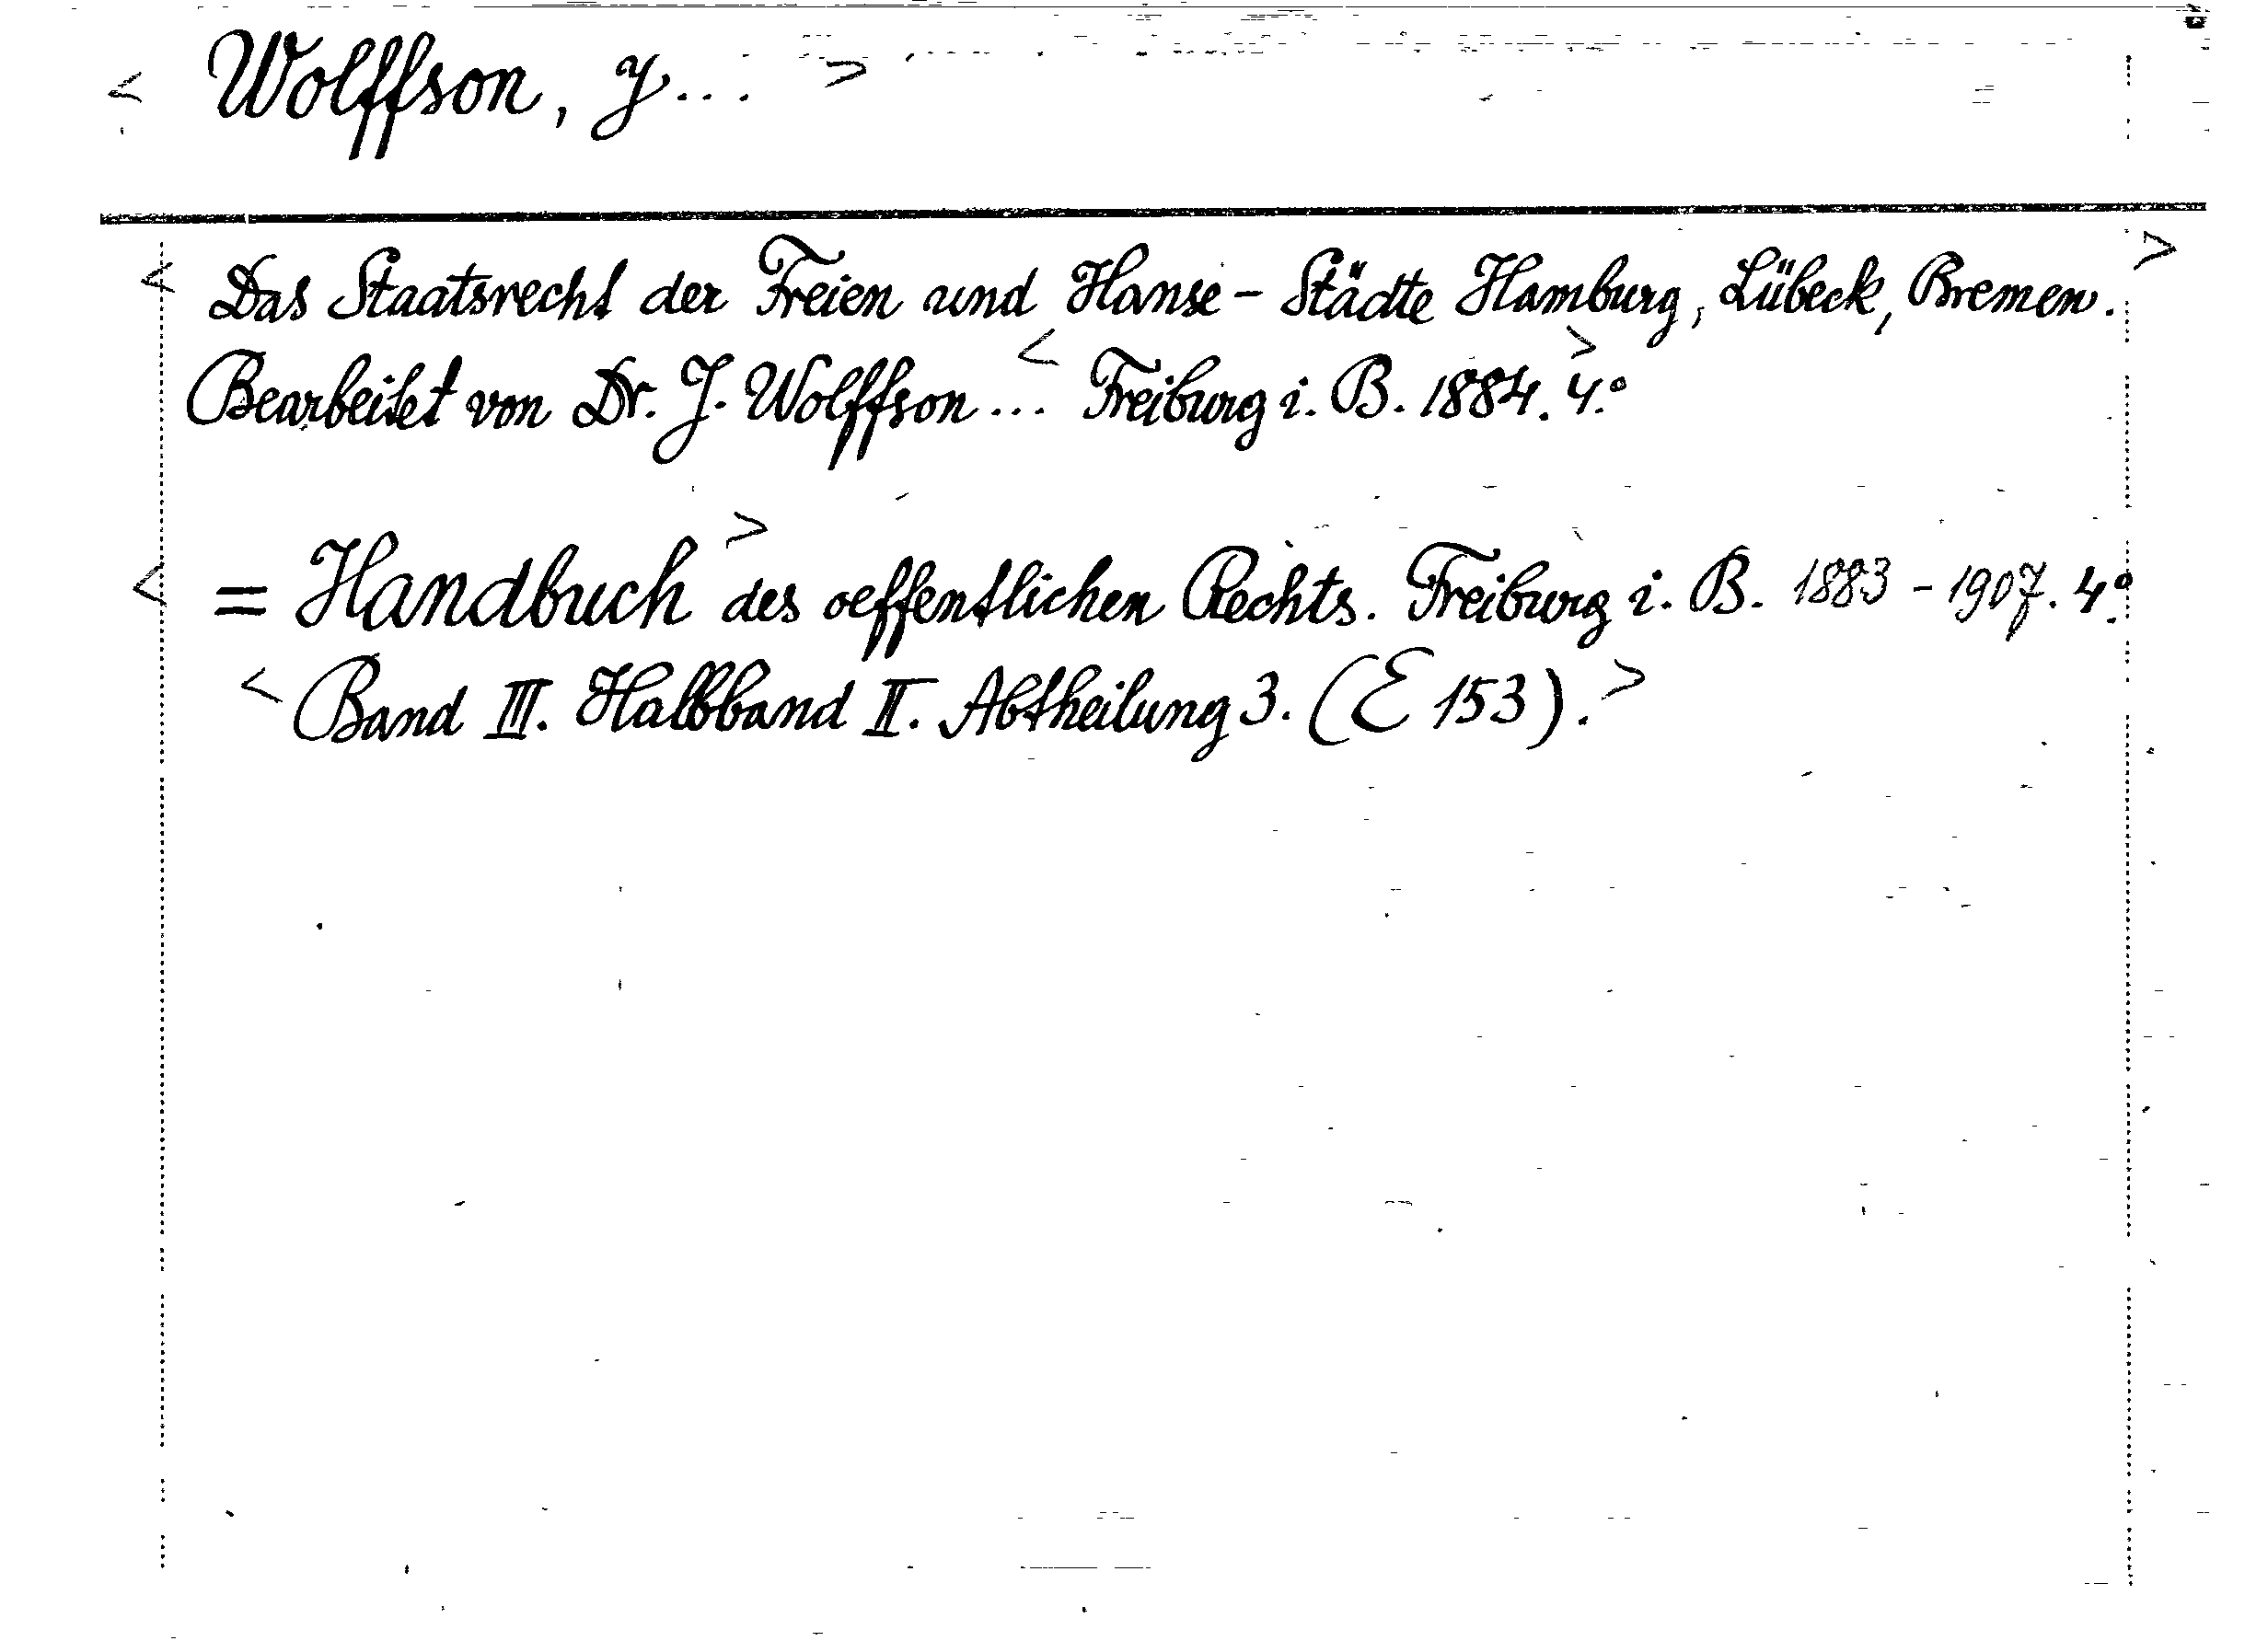 < Wolffson, J... >
< Das Staatsrecht der Freien und Hanse-Städte Hamburg, Lübeck, Bremen. >
Bearbeitet von Dr. J. Wolffson... < Freiburg i. B. 1884. > 4.°
< = Handbuch > des oeffentlichen Rechts. Freiburg i. B. 1883-1907. 4.°
< Band III. Halbband II. Abtheilung 3. (E 153). >